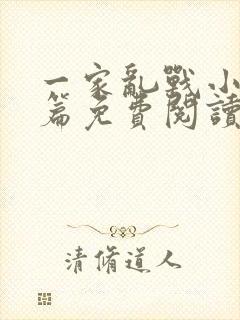 一家亂戰小
篇免費閱讀
清脩道人